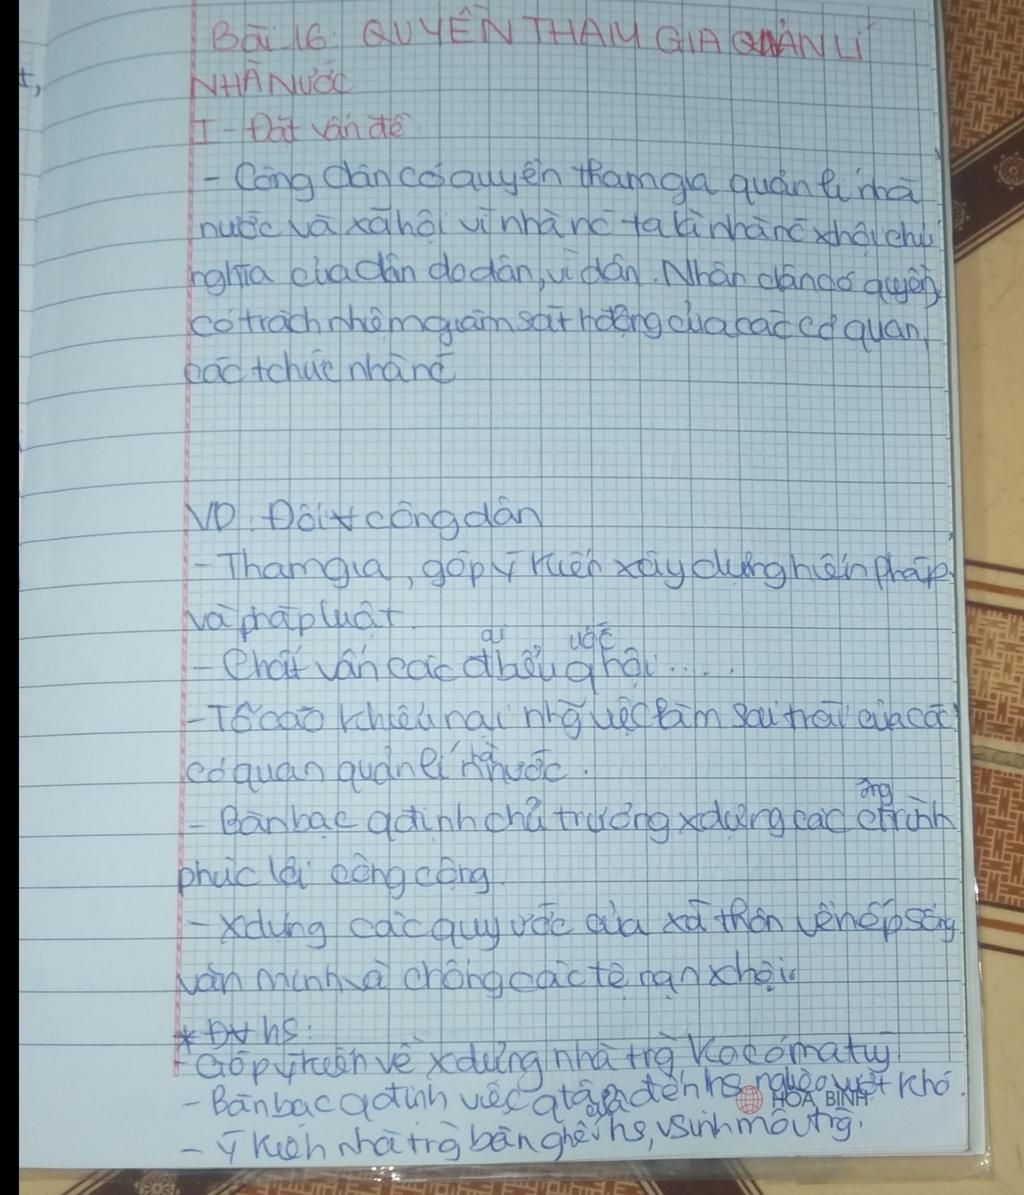 Bài 16: QUYỀN THAM GIA QUẢN LÍ
NHÀ NƯỚC
I - Đặt vấn đề
- Công dân có quyền tham gia quản lí nhà
nước và xã hội vì nhà nc ta là nhà nc xhội chủ
nghĩa của dân do dân, vì dân. Nhân dân có quyền,
có trách nhiệm giám sát hđộng của các cơ quan,
các tchức nhà nc
VD: Đối v công dân
- Tham gia, góp ý kiến xây dựng hiến pháp
và pháp luật.
- Chất vấn các đại biểu quốc hội.....
- Tố cáo khiếu nại nhg việc làm sai trái của các
cơ quan quản lí nhà nước.
- Bàn bạc qđịnh chủ trương xdựng các công trình
phúc lợi công cộng.
- Xdựng các quy ước của xã thôn về nếp sống
văn minh và chống các tệ nạn xhội
* Đv hs:
- Góp ý kiến về xdựng nhà trg ko có ma túy
- Bàn bạc qđịnh việc qtâm đến hs nghèo vượt khó.
- ý kiến nhà trg bàn ghế hs, vsinh môi trg.
HÒA BÌNH